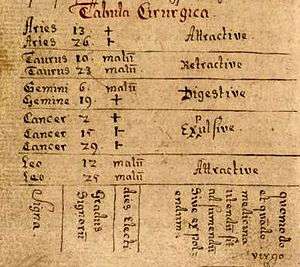 Tabula Cirurgica.
Aries 13 +
Aries 26 + Attractive.
Taurus 10. malū
Taurus 23 malū Retractive
Gemini 6. malū
Gemine 19. + Digestive
Cancer 2 +
Cancer 15 + Expulsive.
Cancer 29 +
Leo 12 malū
Leo 25 malū Attractive
Signa
Gradus
Signarū
dies Electi
quomodo
et quādo
medicina
ad sumendū
Sive ex pel
lendum.
virgo